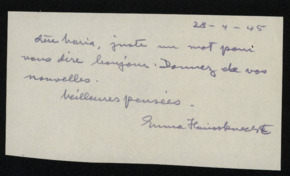 28-4-45
Chère Maria, juste un mot pour
vous dire bonjour. Donnez de vos
nouvelles.
Meilleures pensées.
Emma